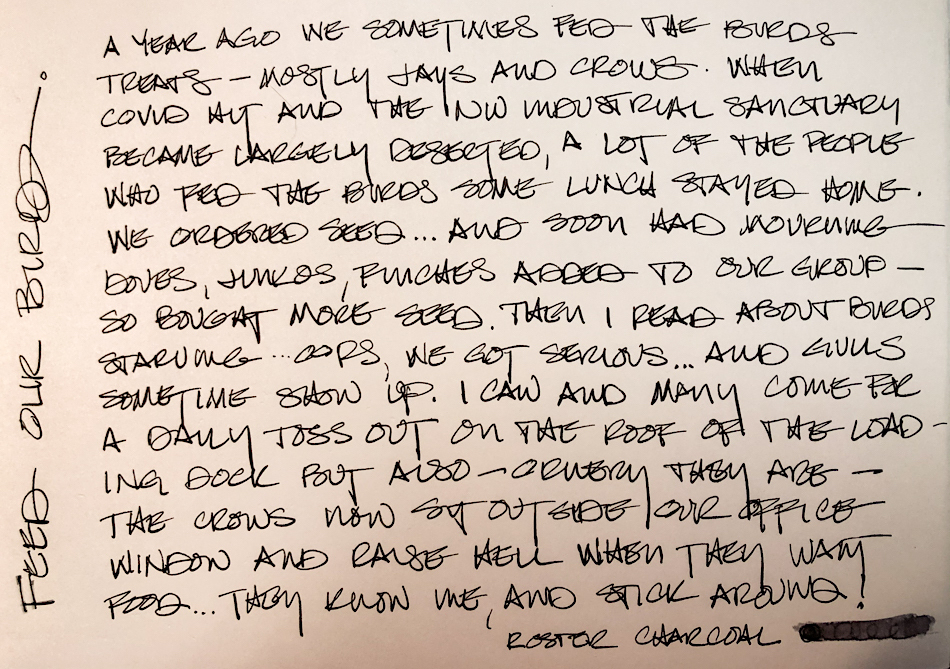 FEED OUR BIRDS.
A YEAR AGO WE SOMETIMES FED THE BIRDS
TREATS — MOSTLY JAYS AND CROWS. WHEN
COVID HIT AND THE NW INDUSTRIAL SANCTUARY
BECAME LARGELY DESERTED, A LOT OF THE PEOPLE
WHO FED THE BIRDS SOME LUNCH STAYED HOME.
WE ORDERED SEED... AND SOON HAD MOURNING
DOVES, JUNKOS, FINCHES ADDED TO OUR GROUP —
SO BOUGHT MORE SEED. THEN I READ ABOUT BIRDS
STARVING ... OOPS, WE GOT SERIOUS... AND GULLS
SOMETIME SHOW UP. I CAW AND MANY COME FOR
A DAILY TOSS OUT ON THE ROOF OF THE LOAD-
ING DOCK BUT ALSO — ORNERY THEY ARE —
THE CROWS NOW SIT OUTSIDE OUR OFFICE
WINDOW AND RAISE HELL WHEN THEY WANT
FOOD... THEY KNOW ME, AND STICK AROUND!
ROSTER CHARCOAL